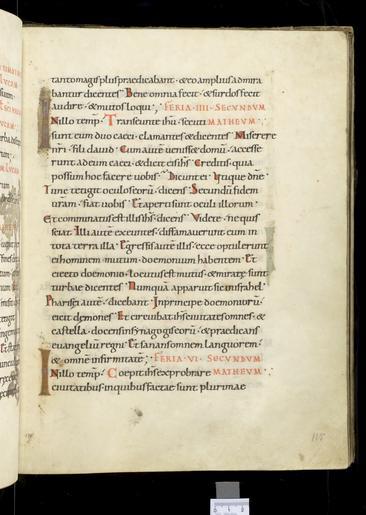 tanto magis plus praedicabant · & eo amplius admira
bantur dicentes · Bene omnia fecit · & surdos fecit
audire · & mutos loqui ; FERIA IIII SECUNDUM
Nillo temp · Transeunte ihu · secuti MATHEUM
sunt eum duo caeci · clamantes & dicentes · Miserere
nri · fili dauid · Cum autē uenisse& domū · accesse
runt ad eum caeci · & dicit eis ihs · Creditis quia
possum hoc facere uobis · Dicunt ei · Utique dne ·
Tunc tetigit oculos eorū · dicens · Secundū fidem
uram · fiat uobis · Et aperti sunt oculi illorum ·
Et comminatus est illis ihs · dicens · Videte · ne quis
sciat · Illi autē exeuntes · diffamauerunt eum in
tota terra illa · Egressis autē illis · ecce optulerunt
ei hominem mutum · doemonium habentem · Et
eiecto doemonio · locutus est mutus · & miratę sunt
turbae dicentes · Numquā apparuit sic in israhel ·
Pharisęi autē · dicebant · In principe doemoniorū ·
eicit dęmones · Et circuibat ihs ciuitates omnes · &
castella · docens in synagogis eorū · & praedicans
euangeliū regni · Et sanans omnem languorem ·
& omnē infirmitatē ; FERIA VI · SECUNDUM
Nillo temp · Coepit ihs exprobrare MATHEUM
ciuitatibus in quibus factae sunt plurimae